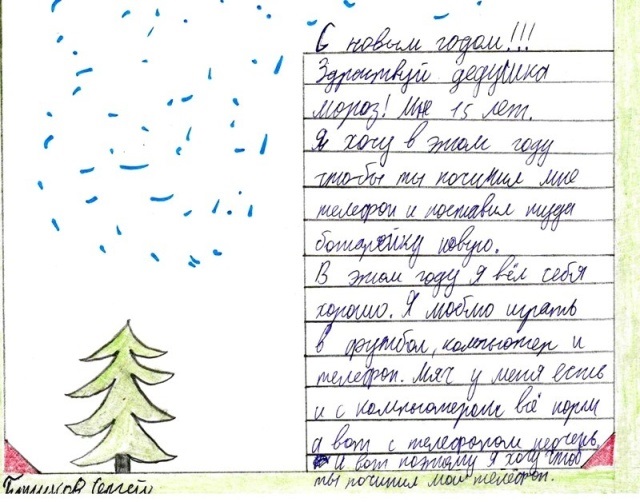 С новым годом!!!
Здраствуй дедушка
мороз! Мне 15 лет.
Я хочу в этом году
чтобы ты починил мне
телефон и поставил туда
батарейку новую.
В этом году я вёл себя
хорошо. Я люблю играть
в футбол, компьютер и
телефон. Мяч у меня есть
и с компьютером всё норм
а вот с телефоном неочень
А вот поэтому я хочу чтоб
ты починил мой телефон.
Сергей